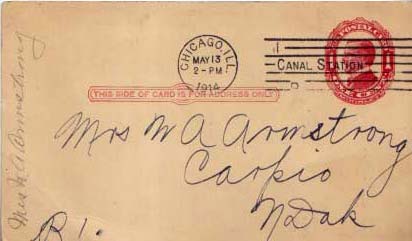 CHICAGO, ILL.
MAY 13
2-PM
1914
CANAL STATION
THIS SIDE OF CARD IS FOR ADDRESS ONLY
Mrs W A Armstrong
Carpio
N. Dak
R 1.
Mrs W A Armstrong